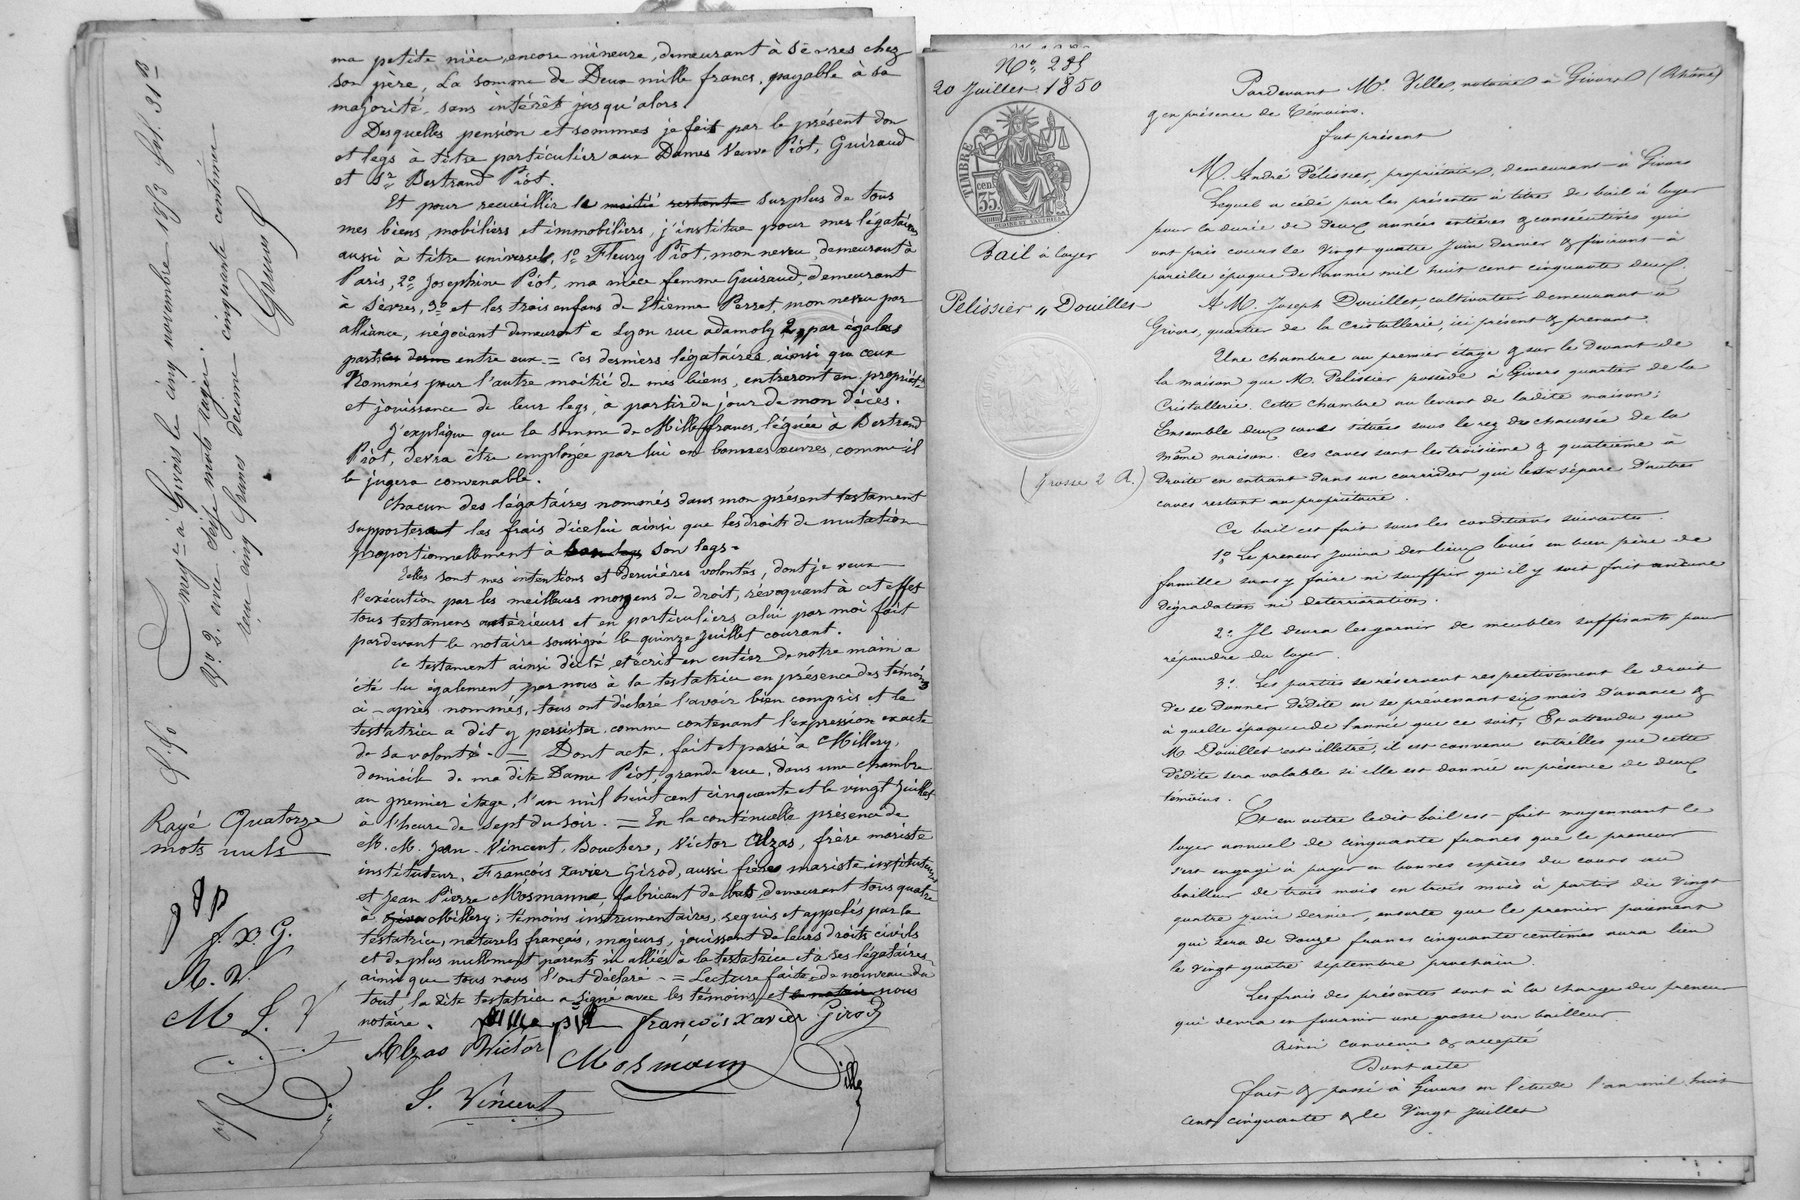 ma petite nièce, encore mineure, demeurant à Sèvres chez
son père, La somme de Deux mille francs, payable à sa
majorité, sans intérêt jusqu'alors.
Desquelles pension et sommes je fait par le présent don
et legs à titre particulier aux Dames Veuve Piot, Guiraud
et Sr. Bertrand Piot.
Et pour recueillir le moitié restante surplus de tous
mes biens mobiliers et immobiliers, j'institue pour mes légataires
aussi à titre universels, 1o Fleury Piot, mon neveu, demeurant à
Paris, 2o Josephine Piot, ma nièce femme Guiraud, demeurant
à Sèvres, 3o et les trois enfans de Etienne Perret, mon neveu par
alliance, négociant demeurant à Lyon rue adamoly 2, par égales
parties entre eux = Ces derniers légataires, ainsi que ceux
Nommés pour l'autre moitié de mes biens, entreront en propriété
et jouissance de leur legs, à partir du jour de mon décès.
J'explique que la somme de Mille francs, léguée à Bertrand
Piot, devra être employée par lui en bonnes œuvres, comme il
le jugera convenable.
Chacun des légataires nommés dans mon présent testament
supportera les frais d'icelui ainsi que les droits de mutation
proportionnellement à son legs son legs.
Telles sont mes intentions et dernières volontés, dont je veux
l'exécution par les meilleurs moyens de droit, révoquant à cet effet
tous testamens antérieurs et en particuliers celui par moi fait
pardevant le notaire soussigné le quinze juillet courant.
Ce testament ainsi dicté, et écrit en entier de notre main a
été lu également par nous à la testatrice en présence des témoins
ci-après nommés, tous ont déclaré l'avoir bien compris et la
testatrice a dit y persister, comme contenant l'expression exacte
de sa volonté. = Dont acte, fait et passé à Millery,
domicile de ma dite Dame Piot, grande rue, dans une chambre
au premier étage, l'an mil huit cent cinquante et le vingt juillet
à l'heure de sept du soir. = En la continuelle présence de
M.M. Jean Vincent, Boucher, Victor Alzas, frère mariste
instituteur, François Xavier Girod, aussi frère mariste instituteur
et Jean Pierre Mosmann, fabricant de bas demeurant tous quatre
à Millery; témoins instrumentaires, requis et appelés par la
testatrice, naturels français, majeurs, jouissant de leurs droits civils
et de plus nullement parents ni alliés à la testatrice et à ses légataires
ainsi que tous nous l'ont déclaré. = Lecture faite de nouveau du
tout, la dite testatrice a signé avec les témoins et le notaire nous
notaire.
François Xavier Girod
Alzas Victor
Mosmann
Ville
J. Vincent
Rayé Quatorze
mots nuls
f. x. G.
A. V.
M J. V
à Givors le cinq novembre 1873 fol. 31
cinq francs décime cinquante centimes
No. 285
20 Juillet 1850
TIMBRE
cent. 35.
Bail à loyer
Pelissier " Douillet
(Grosse 2 R.)
Pardevant Me. Ville, notaire à Givors (Rhône)
& en présence de Témoins.
fut présent
M. André Pélissier, propriétaire, demeurant à Givors
Lequel a cédé par les présentes à titre de bail à loyer
pour la durée de deux années entières & consécutives qui
ont pris cours le Vingt quatre Juin dernier & finiront à
pareille époque de l'année mil huit cent cinquante deux.
A M. Joseph Douillet, cultivateur demeurant à
Givors, quartier de la Cristallerie, ici présent & prenant.
Une chambre au premier étage & sur le Devant de
la maison que M. Pelissier possède à Givors quartier de la
Cristallerie. Cette chambre au levant de ladite maison;
Ensemble deux caves situées sous le rez de chaussée de la
même maison. Ces caves sont les troisième & quatrième à
Droite en entrant dans un corridor qui les sépare d'autres
caves restant au propriétaire.
Ce bail est fait sous les conditions suivantes.
1o Le preneur jouira des lieux loués en bon père de
famille sans y faire ni souffrir qu'il y soit fait aucune
Dégradation ni détérioration.
2o Il devra les garnir de meubles suffisants pour
répondre du loyer.
3o. Les parties se réservent respectivement le droit
de se Donner Dédite en se prévenant six mois d'avance &
à quelle époque de l'année que ce soit, Et attendu que
M. Douillet est illetré, il est convenu entr'elles que cette
Dédite sera valable si elle est donnée en présence de deux
témoins.
Et en outre ledit bail est fait moyennant le
loyer annuel de cinquante francs que le preneur
s'est engagé à payer en bonnes espèces du cours au
bailleur de trois mois en trois mois à partir du Vingt
quatre juin dernier, ensorte que le premier paiement
qui sera de douze francs cinquante centimes aura lieu
le vingt quatre septembre prochain.
Les frais des présentes sont à la charge du preneur
qui devra en fournir une grosse au bailleur.
Ainsi convenu & accepté
Dont acte
fait & passé à Givors en l'étude l'an mil huit
cent cinquante & le Vingt juillet